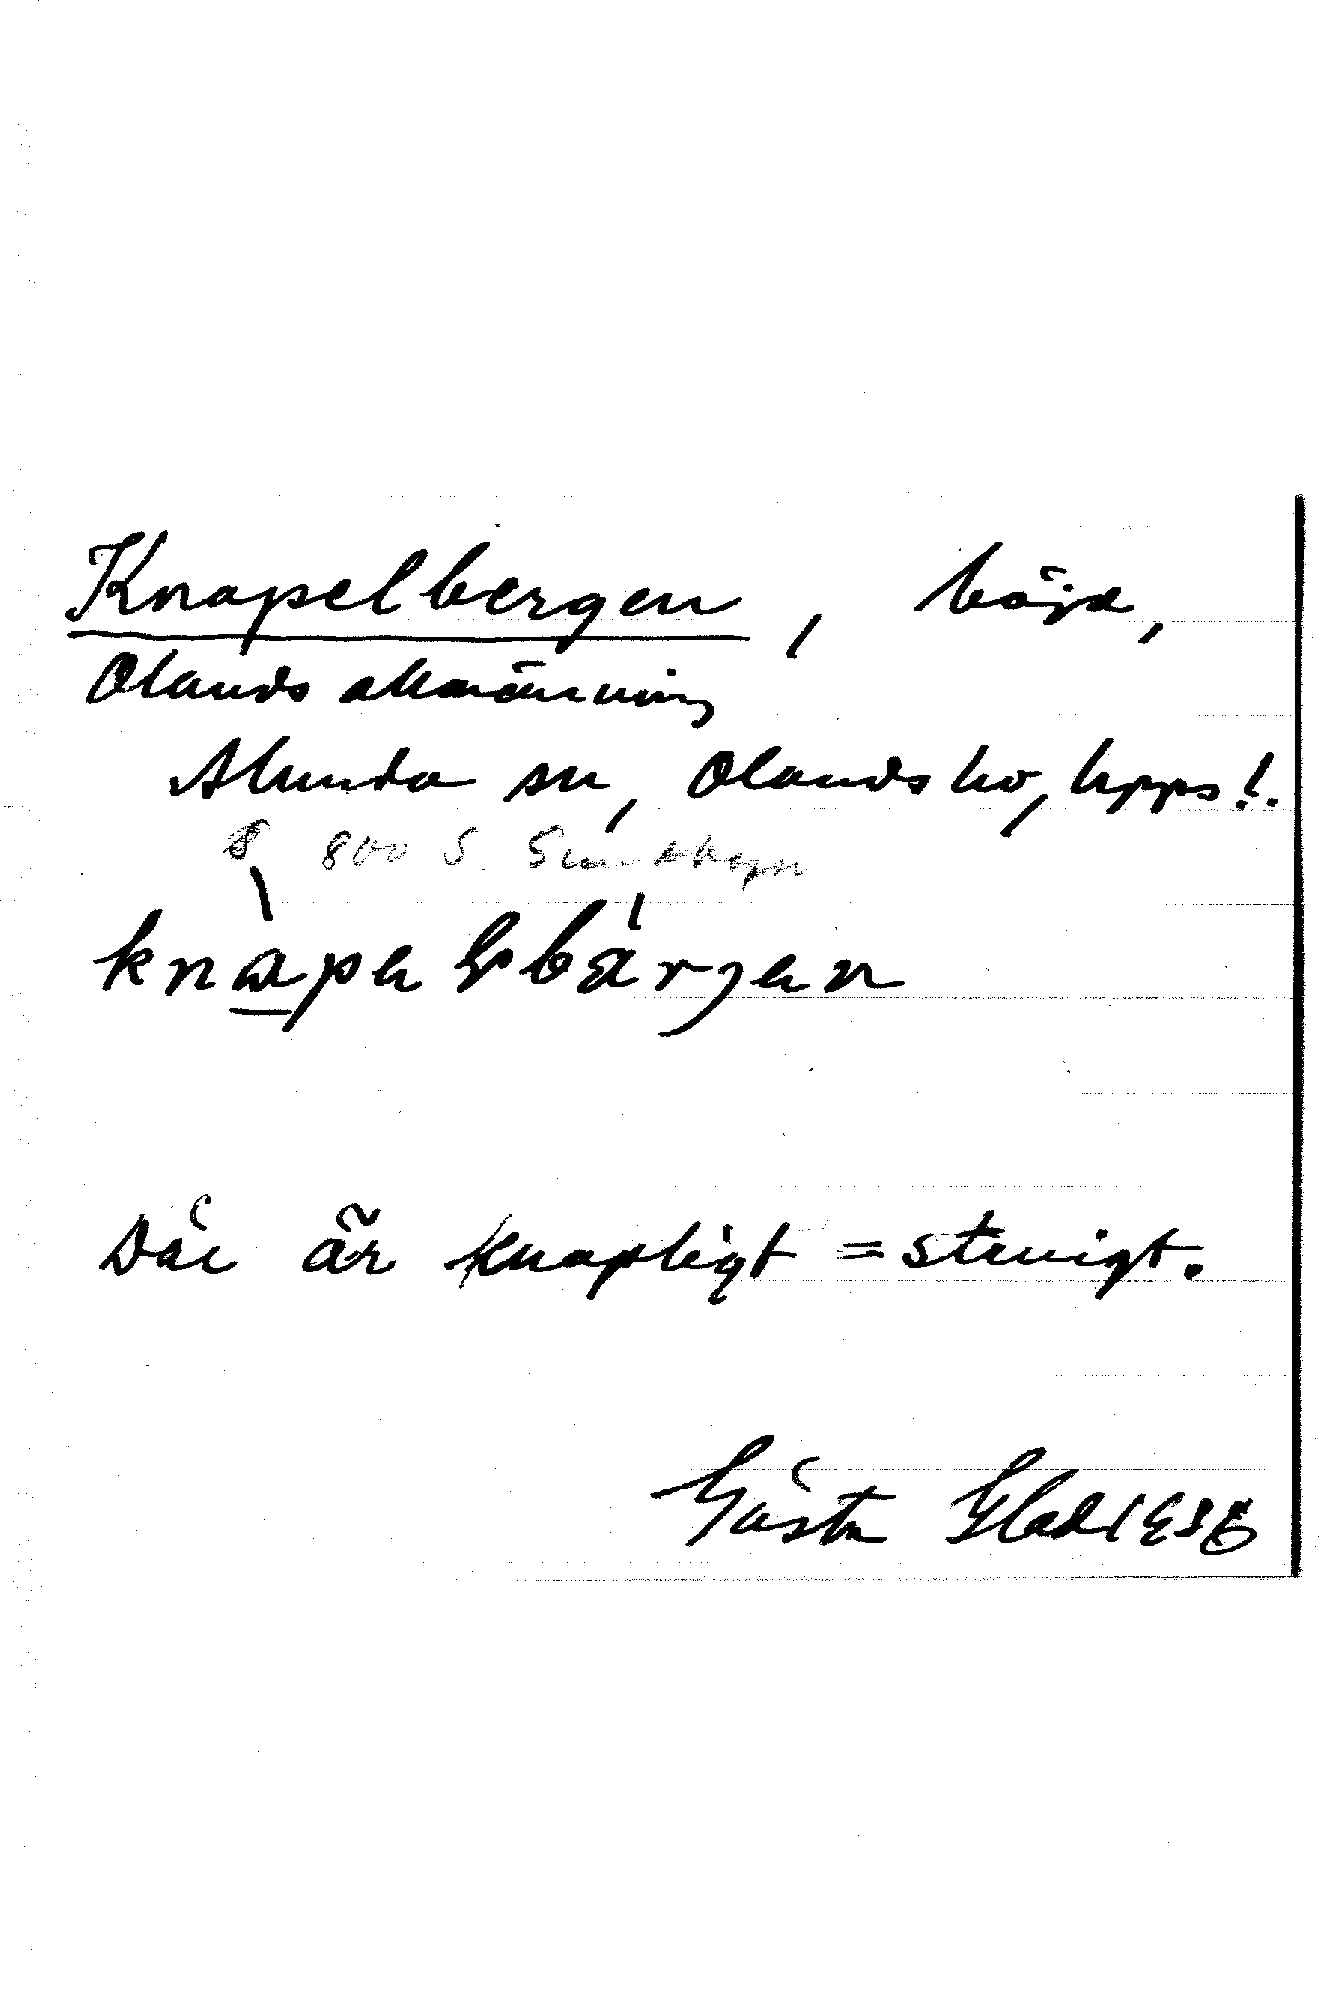 Knapelbergen, höjd,
Olands allmänning
Alunda sn, Olands hd, Upps. l.
8 800 S
knàpelbárjen
Där är knapligt = stenigt.
Gösta